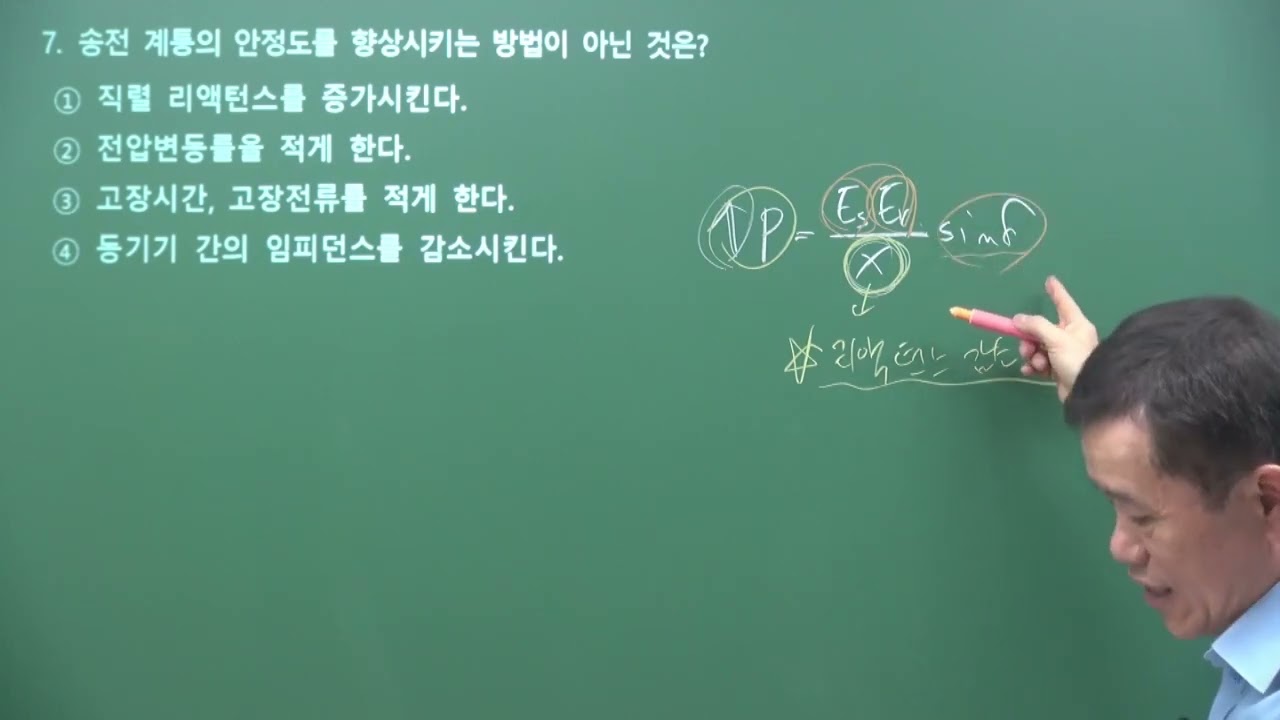 7. 송전 계통의 안정도를 향상시키는 방법이 아닌 것은?
① 직렬 리액턴스를 증가시킨다.
② 전압변동률을 적게 한다.
③ 고장시간, 고장전류를 적게 한다.
④ 동기기 간의 임피던스를 감소시킨다.
↑P = EsEr / X sinδ
↓
☆ 리액턴스 감소